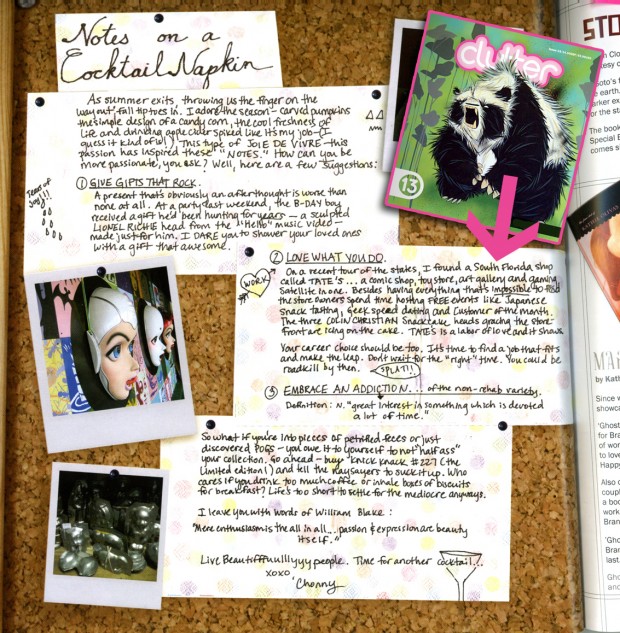 Notes on a
Cocktail Napkin
As summer exits, throwing us the finger on the
way out, fall tiptoes in. I adore the season - carved pumpkins
the single design of a candy corn, the cool freshness of
life and drinking apple cider spiked like it's my job - (I
guess it kind of is!) This type of JOIE DE VIVRE - this
passion has inspired these "NOTES." How can you be
more passionate, you ask? Well, here are a few suggestions:
Tears of
Joy!!
① GIVE GIFTS THAT ROCK.
A present that's obviously an afterthought is worse than
none at all. At a party last weekend, the B-DAY boy
received a gift he'd been hunting for years - a sculpted
LIONEL RICHIE head from the "Hello" music video -
made just for him. I DARE you to shower your loved ones
with a gift that awesome.
② LOVE WHAT YOU DO.
WORK
On a recent tour of the states, I found a South Florida shop
called TATE'S ... a comic shop, toy store, art gallery and gaming
Satellite in one. Besides having everything that's impossible to find
the store owners spend time hosting FREE events like Japanese
Snack tasting, Geek speed dating and Customer of the month.
The three COLIN CHRISTIAN Snackcake heads gracing the store
front are icing on the cake. TATE'S is a labor of love and it shows.
Your career choice should be too. It's time to find a job that fits
and make the leap. Don't wait for the "right" time. You could be
roadkill by then. SPLAT!!
③ EMBRACE AN ADDICTION... of the non-rehab variety.
Definition: N. "great interest in something which is devoted
a lot of time."
So what if you're into pieces of petrified feces or just
discovered POGS - you owe it to yourself to not "half ass"
your collection. Go ahead - buy "knick knack #227 (the
limited edition!) and tell the naysayers to suck it up. Who
cares if you drink too much coffee or inhale boxes of biscuits
for breakfast? Life's too short to settle for the mediocre anyways.
I leave you with words of William Blake:
"Mere enthusiasm is the all in all... passion & expression are beauty
itself."
xoxo
clutter
13
STO
by Kath
Since w
showca
'Ghost
for Bra
of wor
to love
Happy
Also c
coupl
a boo
work
Bran
'Gho
Bran
last.
Gho
and
The book
Special E
comes s